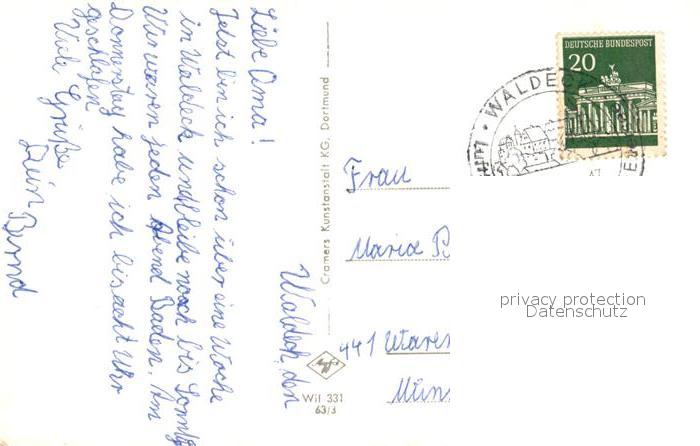 Waldeck, den
Liebe Oma!
Jetzt bin ich schon über eine Woche
in Waldeck und bleibe noch bis Sonntag
Wir waren jeden Abend Baden. Am
Donnerstag habe ich bis acht Uhr
geschlafen
Viele Grüße
Dein
Bernd
Cramers Kunstanstalt KG, Dortmund
Wil 331
63/3
DEUTSCHE BUNDESPOST
20
WALDECK
Frau
Maria B
441 Waren
Müns
privacy protection
Datenschutz